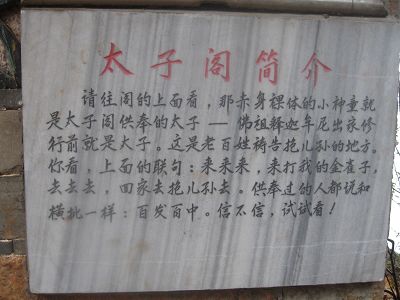 太子阁简介
请往阁的上面看，那赤身裸体的小神童就
是太子阁供奉的太子 — 佛祖释迦牟尼出家修
行前就是太子。这是老百姓祷告抱儿孙的地方。
你看，上面的联句：来来来，来打我的金雀子，
去去去，回家去抱儿孙去。供奉过的人都说和
横批一样：百发百中。信不信，试试看！